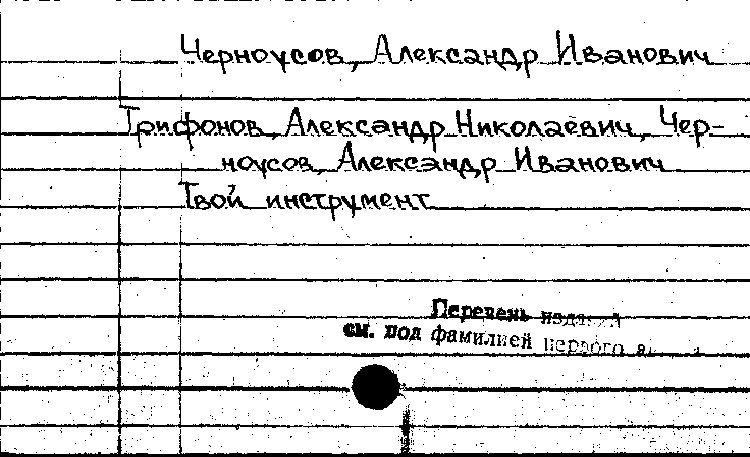 Черноусов, Александр Иванович
Трифонов, Александр Николаевич, Чер-
ноусов, Александр Иванович
Твой инструмент
Перечень изданий
см. под фамилией первого